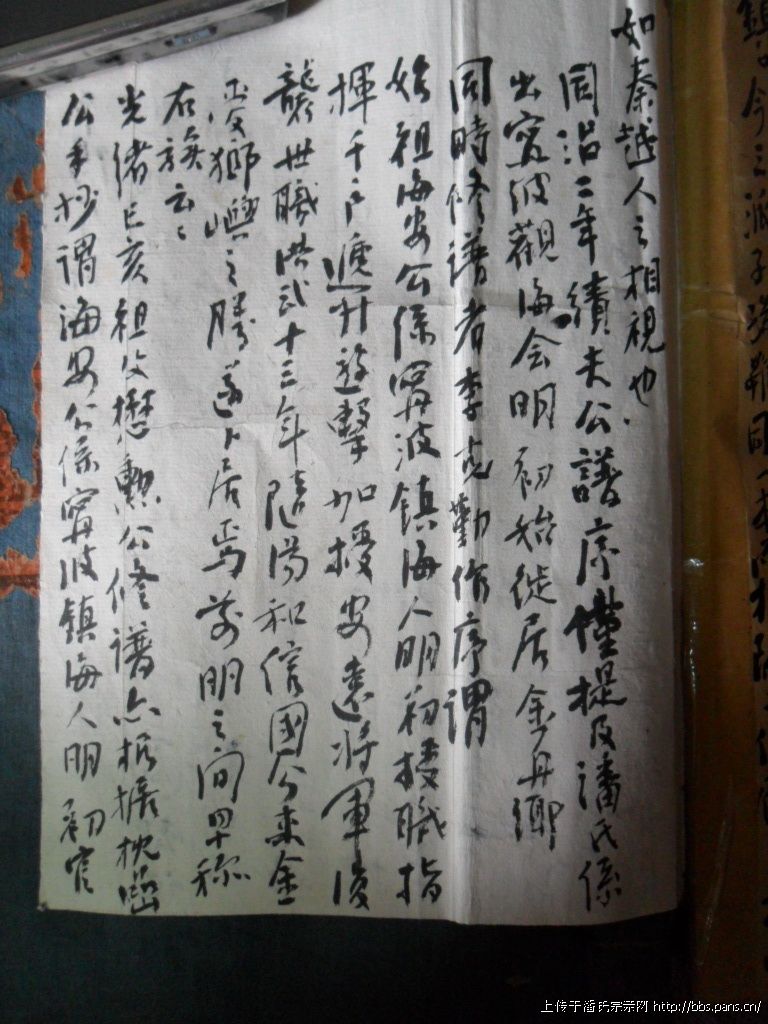 如秦越人之相視也
同治二年續夫公譜序僅提及潘氏係
出寧波觀海会明初始徙居金丹鄉
同時修譜者李克勤作序謂
始祖海安公係寧波鎮海人明初授職指
揮千户遞升遊擊加授安遠将軍後
襲世職洪武十三年隨湯和信國公來金
愛獅嶼之勝遂卜居焉前明之间早称
右族云云
光绪己亥祖父懋勳公修譜亦根據枕函
公手抄謂海安公係寧波鎮海人明初官
今之派子孫
上传于潘氏宗亲网 http://bbs.pans.cn/